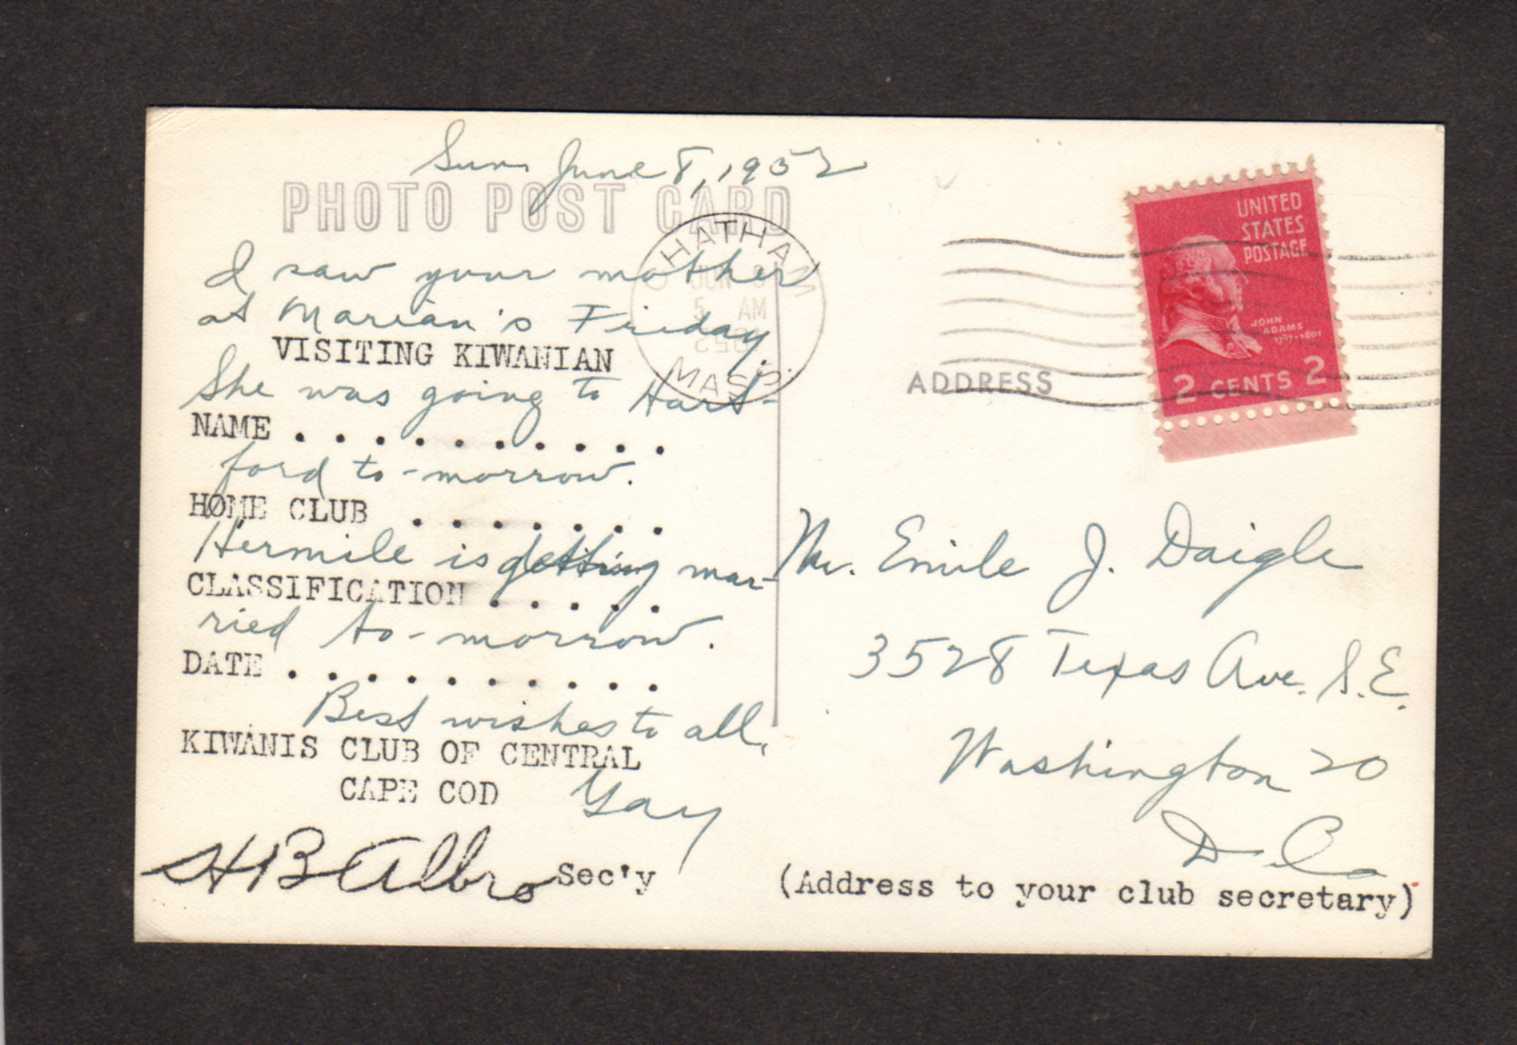 Sun June 8, 1952
PHOTO POST CARD
I saw your mother
at Marian's Friday.
VISITING KIWANIAN
She was going to Hart-
NAME . . . . . . . . . .
ford to-morrow.
HOME CLUB . . . . . . .
Hermile is getting mar-
CLASSIFICATION . . . . .
ried to-morrow.
DATE . . . . . . . . . .
Best wishes to all,
KIWANIS CLUB OF CENTRAL
CAPE COD
Gay
H B Albro Sec'y
CHATHAM
JUN 8
5 AM
1952
MASS.
UNITED
STATES
POSTAGE
JOHN
ADAMS
1797-1801
2 CENTS 2
ADDRESS
Mr. Emile J. Daigle
3528 Texas Ave. S.E.
Washington 20
D.C.
(Address to your club secretary)